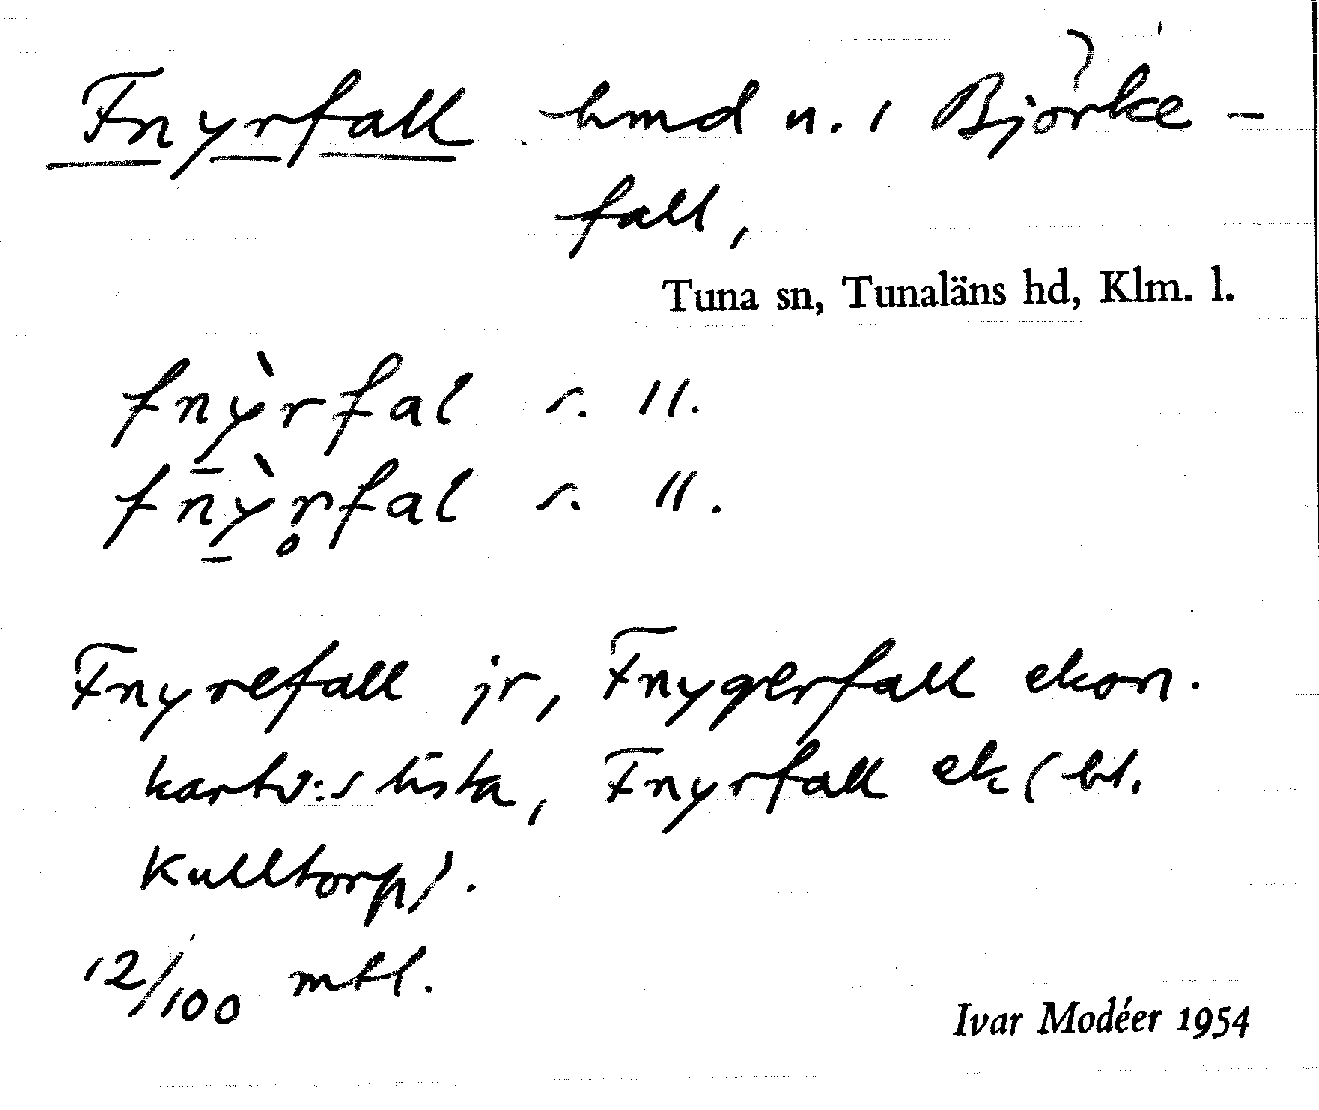 Fnyrfall hmd n. i Björke-
fall,
Tuna sn, Tunaläns hd, Klm. l.
fnỳ̱rfal s. II.
fnỳ̱r̥fal s. II.
Fnyrefall jr, Fnygerfall ekon.
kartv:s lista, Fnyrfall ek (bl.
Kulltorp).
12/100 mtl.
Ivar Modéer 1954